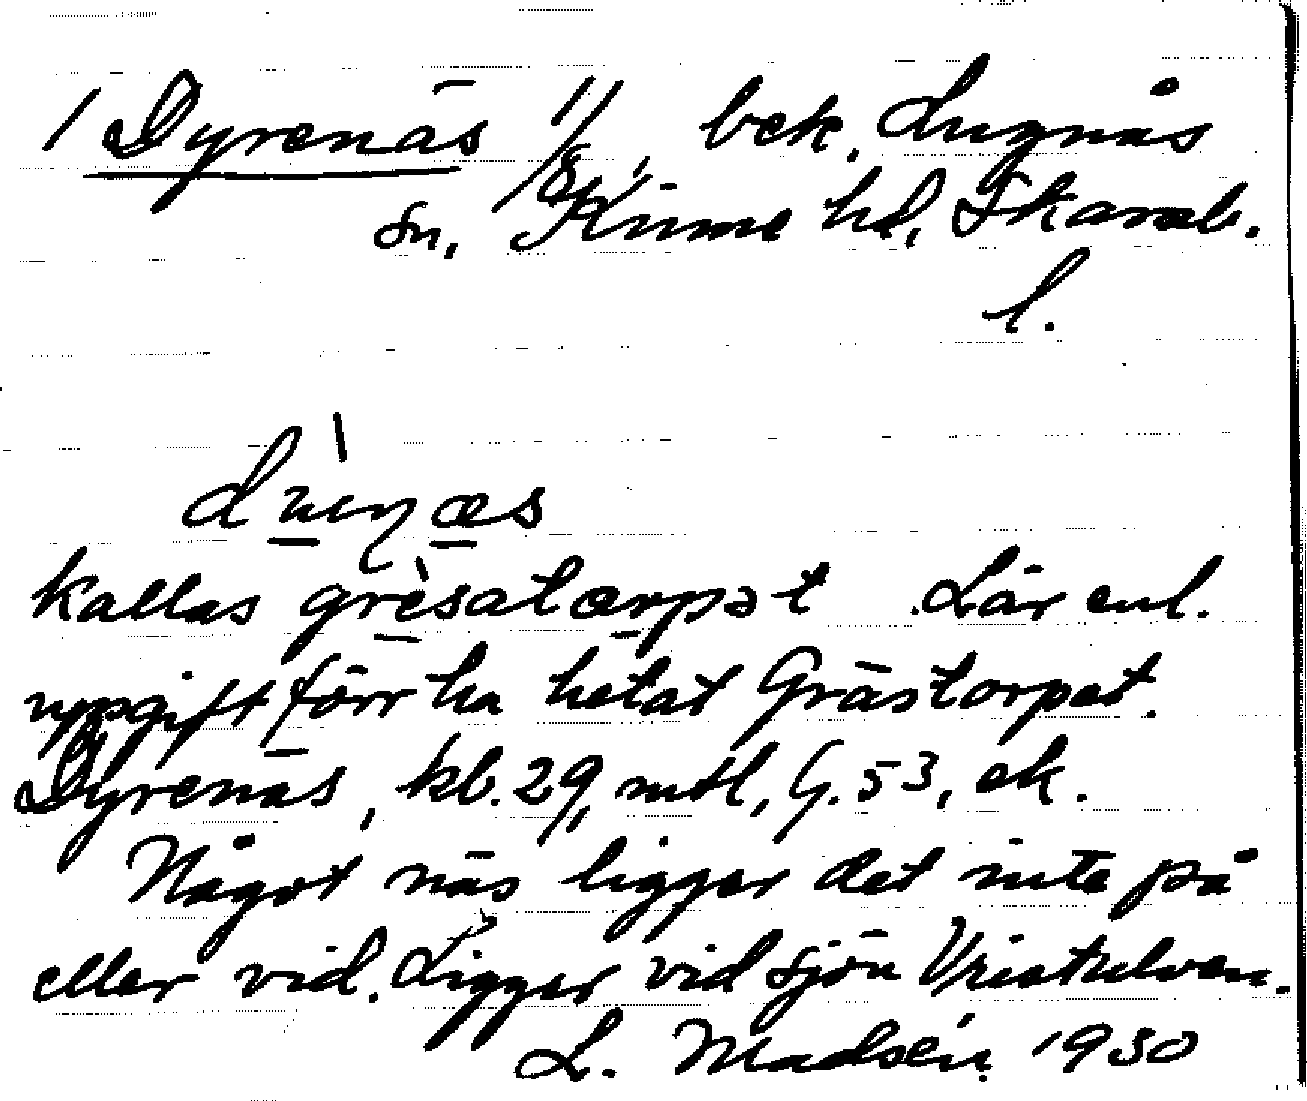 / Dyrenäs 1/8, bek. Lugnås
sn, Kinne hd, Skarab.
l.
kallas grèsatærpət Lär enl.
uppgift förr ha hetat Grästorpet.
Dyrenäs, kb. 29, mtl, G. 53, ek.
Något näs ligger det inte på
eller vid. Ligger vid sjön Vristulven.
L. Madsén 1930